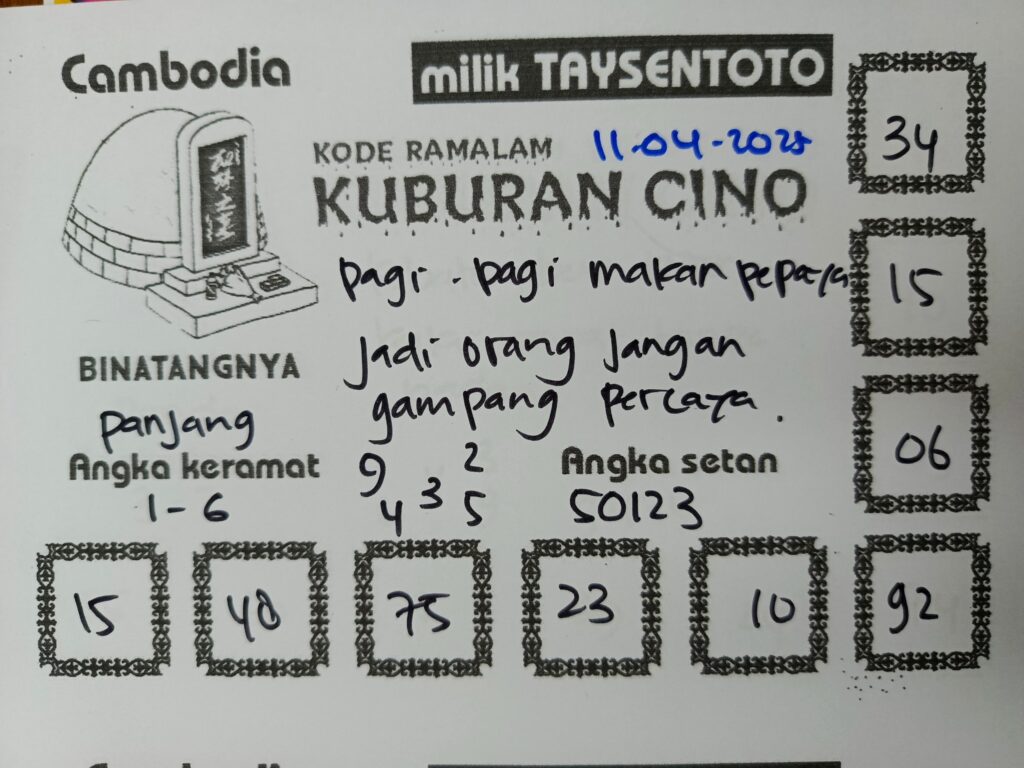 Cambodia
milik TAYSENTOTO
KODE RAMALAM 11-04-2025
KUBURAN CINO
pagi - pagi makan pepaya
Jadi orang Jangan
gampang percaya.
BINATANGNYA
panjang
Angka keramat
1-6
9 2
4 3 5
Angka setan
50123
34
15
06
92
15 48 75 23 10